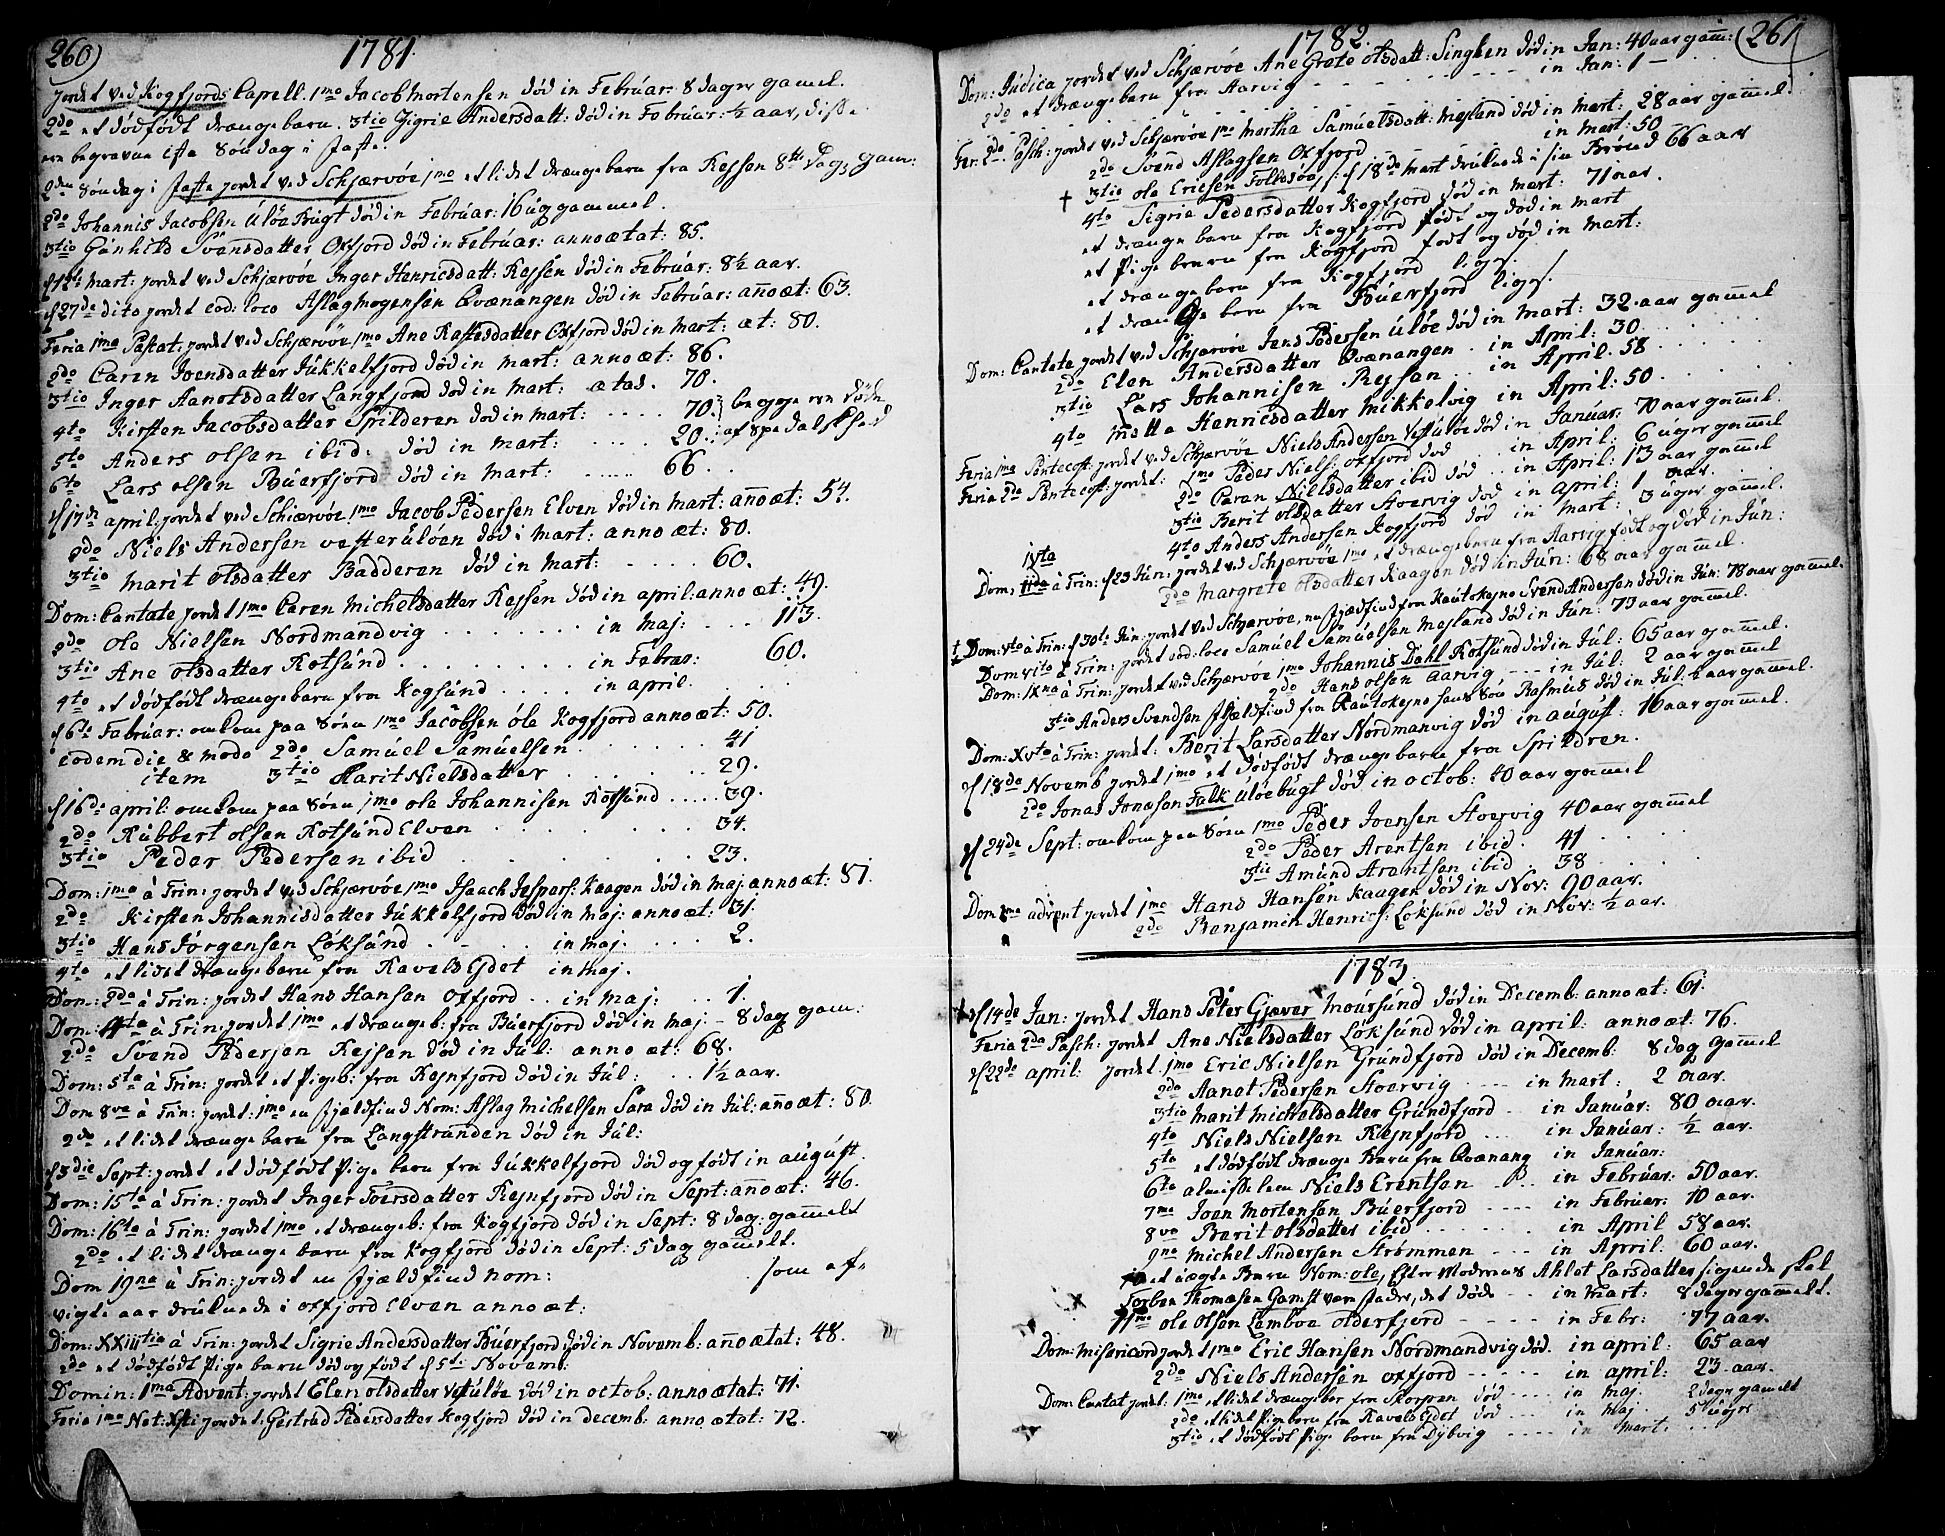 260)
1781.
jordet ved Kogfjords Capell. 1mo Jacob Mortensen død in Februar: 8 dager gamel.
2do et dødfødt drængebarn. 3tio Gigrie Andersdatt: død in Februar: ½ aar, disse
ere begravne 1ste Søndag i Faste.
2den Søndag i Faste jordet ved Schjærvöe 1mo et lidet drængebarn fra Rejsen 8te Dags gam:
2do Johannis Jacobsen Ulöe Bugt død in Februar: 16 ug gammel.
3tio Gunhild Svansdatter Oxfjord død in Februar: anno ætat: 85.
d 12te Mart: jordet ved Schjærvöe Inger Henricsdatt: Rejsen død in Februar: 8½ aar.
d 27de dito jordet eod: loco Aslag Mogensen Qvænangen død in Februar: año æt: 63.
Feria 1ma Paschat: jordet ved Schjærvöe 1mo Ane Rastesdatter Oxfjord død in Mart: æt: 80.
2do Caren Joensdatter Jukkelfjord død in Mart: anno æt: 86.
3tio Inger Aanotsdatter Langfjord død in Mart: ætat. 70.
4to Kirsten Jacobsdatter Spilderen død in Mart: .... 70. begge ere døde
5to Anders Olsen ibid. død in Mart: .... 20. af Spedalskhed
6to Lars Olsen Buerfjord død in Mart: ...... 66.
d 17de april: jordet ved Schjærvöe 1mo Jacob Pedersen Elven død in Mart: año æt: 54.
2do Niels Andersen Vesterulöen død i Mart: anno æt: 80.
3tio Marit Olsdatter Badderen død in Mart: ..... 60.
Dom: Cantate jordet 1mo Caren Michelsdatter Rejsen død in april: anno æt: 49.
2do Ole Nielsen Nordmandvig ........ in Maj: .... 113.
3tio Ane Olsdatter Rotsund ......... in Febrar: 60.
4to et dødfødt drængebarn fra Kogsund ..... in april.
d 6te Februar: omkom paa Söen 1mo Jacobsen Ole Kogfjord anno æt: 50.
eodem die & modo 2do Samuel Samuelsen ....... 41
item 3tio Marit Nielsdatter ....... 29.
d 16de april: omkom paa Söen 1mo Ole Johannisen Rotsund ..... 39.
2do Rubbert Olsen Rotsund Elven ........ 34.
3tio Peder Pedersen ibid ........ 23.
Dom: 1ma à Trin: jordet ved Schjærvöe 1mo Isaach Jespers: Kaagen død in Maj. anno æt: 87.
2do Kirsten Johannisdatter Jukkelfjord død in Maj: anno æt: 31.
3tio Hans Jörgensen Löksund ..... in Maj. .... 2.
4to et lidet drængebarn fra Ravels Ejdet in Maj.
Dom: 2da à Trin: jordet Hans Hansen Oxfjord .. in Maj: .. 1.
Dom: 4ta à Trin: jordet 1mo et drængeb: fra Buerfjord død in Maj - 8 dag gam:
2do Svend Pedersen Rejsen død in Jul: anno æt: 68.
Dom: 5ta à Trin: jordet et Pigeb: fra Rejnfjord død in Jul: ... 1½ aar.
Dom 8va à Trin: jordet: 1mo en Fjældfind Nom: Aslag Michelsen Sara død in Jul: año æt: 80.
2do et lidet drænge barn fra Langstranden død in Jul:
d 3die Sept: jordet et dødfødt Pige barn fra Jukkelfjord død og født in august.
Dom: 15ta à Trin: jordet Inger Toersdatter Rejnfjord død in Sept: año æt: 46.
Dom: 16ta à Trin: jordet 1mo et drængeb: fra Kogfjord død in Sept: 8 dag: gamelt
2do et lidet drænge barn fra Kogfjord død in Sept: 5 dag gamelt.
Dom 19na à Trin: jordet en Fjældfind nom: som afvigte
aar druknede i Oxfjord Elven anno æt:
Dom: XXIIItia à Trin: jordet Sigrie Andersdatter Buerfjord død in Novemb: año ætat: 48.
2do et dødfødt Pige barn død og født d 5te Novemb:
Domin: 1ma Advent: jordet Elen Olsdatter Vestulöe død in octob: anno ætat: 71.
Feria 1ma Nat: Xsti jordet: Gertrud Pedersdatter Kogfjord død in decemb: anno ætat: 72.
1782.
(261
Dom: Judica jordet ved Schjærvöe Ane Grete Olsdatt: Singhen død in Jan: 40 aar gam:
2do et drænge barn fra Aarvig ------ in Jan: 1 -
Fer: 2da Pasch: jordet ved Schjærvöe 1mo Martha Samuelsdatt: Mejland død in Mart: 28 aar gamel.
2do Svend Aslagsen Oxfjord in Mart: 50
† 3tio Ole Ericsen Folkesöe, d 18de Mart druknede i sin Brønd 66 aar
4to Sigrie Pedersdatter Kogfjord død in Mart: 71 aar.
et drænge barn fra Kogfjord født og død in Mart
et Pige barn fra Kogfjord født og død in Mart:
et drænge barn fra Kogfjord lige/.
et drænge barn fra Buerfjord lige/.
Dom: Cantate jordet ved Schjærvöe Jens Pedersen Ulöe død in Mart: 32 aar gamel
2do Elen Andersdatter Qvænangen .. in April: 30 ......
3tio Lars Johannisen Rejsen .. in April: 58 ......
4to Mette Henricsdatter Mikkelvig in April: 50 ......
Feria 1ma Pentecost: jordet ved Schjærvöe Niels Andersen Vestulöe død in Januar: 70 aar gamel.
Feria 2da Pentecost: jordet: 1mo Peder Niels: Oxfjord død .. in April: 6 uger gamel
2do Caren Nielsdatter ibid død .. in April: 13 aar gamel
3tio Berit Olsdatter Stoervig død in April: 1 aar.
4to Anders Andersen Kogfjord død in Mart: 3 uger gamel.
Dom: IVta à Trin: d 23 Jun: jordet ved Schjærvöe 1mo et drængebarn fra Aarvig født og død in Jun:
2do Margrete Olsdatter Kaagen død in Jun: 68 aar gamel.
† Dom: Vta à Trin: d 30te Jun: jordet ved Schjærvöe, en Fjældfind fra Kautokejno Svend Andersen død in Jun: 78 aar gamel.
Dom VIta à Trin: jordet eod: loco Samuel Samuelsen Mejland død in Jun: 73 aar gamel.
Dom: IXna à Trin: jordet ved Schjærvöe 1mo Johannis Dahl Rotsund død in Jul: 65 aar gamel.
2do Hans Olsen Aarvig ---- in Jul: 2 aar gamel
3tio Anders Svendsen Fjældfind fra Kautokejno hans Sön Rasmus død in Jul: ½ aar gamel.
Dom: XVta à Trin: jordet: Berit Larsdatter Nordmanvig død in august: 16 aar gamel.
d 18de Novemb jordet 1mo et dødfødt drængebarn fra Spildren.
2do Jonas Jonasen Falk Ulöebugt død in octob: 40 aar gamel
d 24de Sept: omkom paa Söen 1mo Peder Joensen Stoervig 40 aar gamel
2do Peder Arentsen ibid. 41 ....
3tio Amund Arentsen ibid. 38 ....
Dom 1ma advent jordet 1mo Hans Hansen Kaagen død in Nov: 90 aar.
2do Benjamin Henrics: Löksund død in Nov: ½ aar.
1783.
† d 14de Jan: jordet Hans Peter Gjæver Moursund død in Decemb: anno æt: 61.
Feria 2da Pasch: jordet Ane Nielsdatter Löksund død in april: anno æt: 76.
d 22de april: jordet 1mo Eric Nielsen Grundfjord død in Decemb: 8 dag gamel
2do Aanet Pedersen Stoervig ---- in Mart: 2 aar.
3tio Marit Michelsdatter Grundfjord -- in Januar: 80 aar.
4to Niels Nielsen Rejnfjord ---- in Januar: ½ aar.
5to et dødfødt drænge Barn fra Qvænang in Januar:
6to almisselem Niels Erentsen .. in Februar: 50 aar.
7mo Joen Mortensen Buerfjord ---- in Februar: 10 aar.
8vo Berit Olsdatter ibid ------ in April 58 aar.
9no Michel Andersen Strömmen --- in April: 60 aar.
10 et uægte Barn Nom: Ole, Efter Moderens Ahlot Larsdatters sigende skal
x Torben Thomæsen Gamst være fader, det døde -- in Mart: 8 dager gammelt.
11mo Ole Olsen Lamboe Olderfjord ---- in Febr: 77 aar.
Dom: Misericord jordet 1mo Eric Hansen Nordmandvig død. in april: 65 aar
2do Niels Andersen Oxfjord ----- in april: 23 aar.
Dom: Cantat jordet: 1mo et lidet drængebar fra Skorpen død ---- in Maj. 2 dage gamelt
2do et lidet Pigebarn fra Ravels Ejdet død ---- in Maj. 5 uger
3tio et dødfødt Pige barn fra Dybvig ---- in Mart.